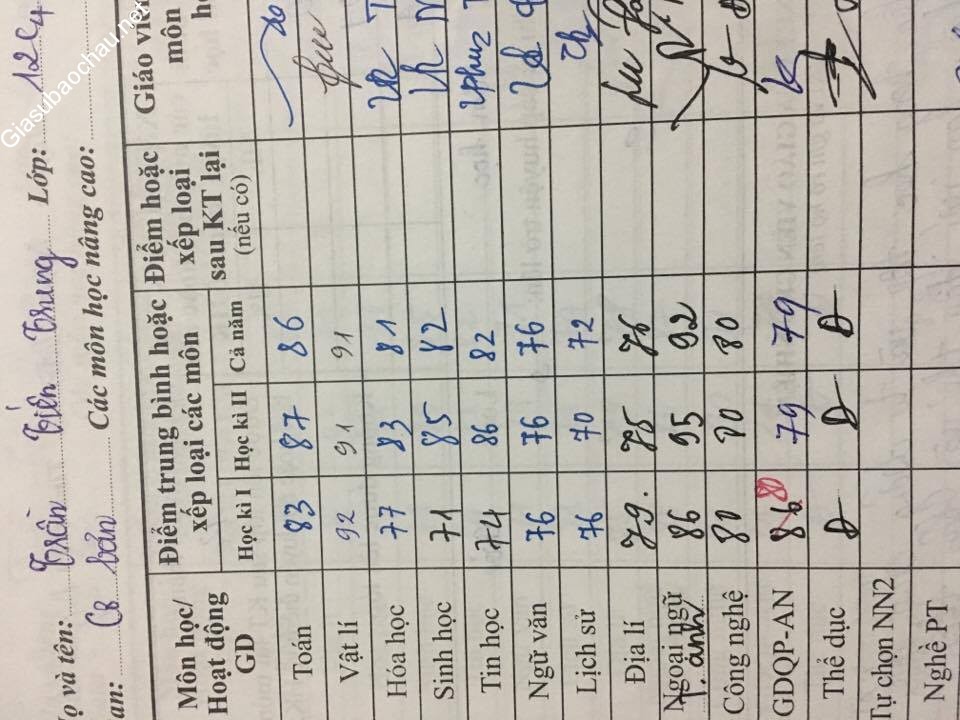 Giasubaochau.net
Họ và tên: Trần Tiến Trung Lớp: 12C4
Ban: CB bản Các môn học nâng cao:
Môn học/ Hoạt động GD Điểm trung bình hoặc xếp loại các môn Điểm hoặc xếp loại sau KT lại (nếu có) Giáo viên môn
Học kì I Học kì II Cả năm
Toán 83 87 86
Vật lí 92 91 91
Hóa học 77 83 81
Sinh học 71 85 82
Tin học 74 86 82
Ngữ văn 76 76 76
Lịch sử 76 70 72
Địa lí 79. 75 76
Ngoại ngữ T.anh 86 95 92
Công nghệ 80 80 80
GDQP-AN 80 79 79
Thể dục Đ Đ Đ
Tự chọn NN2
Nghề PT